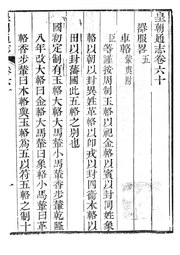 皇朝通志卷六十
器服畧五
車輅
臣等謹按周制玉輅以祀金輅以賓以封同姓象
輅以朝以封異姓革輅以卽戎以封四衞木輅以
田以封藩國此五輅之别也
國初定制有玉輅大輅大馬輦小馬輦香步輦乾隆
八年改大輅曰金輅大馬輦曰象輅小馬輦曰革
輅香步輦曰木輅與玉輅爲五以符五輅之制十